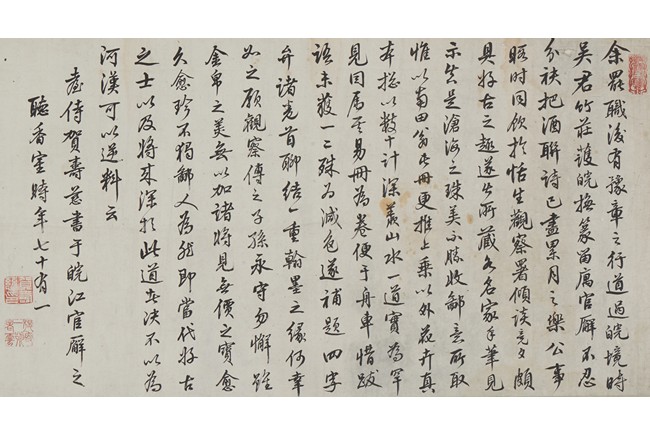 余罷職後有豫章之行道過皖境時
吳君竹莊護皖撫篆留寓官廨不忍
分袂把酒聯詩已盡累月之樂公事
暇時同飲於恬生觀察署傾談竟夕頗
具好古之趣遂出所藏名名家手筆見
示失是滄海之珠美不勝收鄙意所取
惟以南田翁此冊更推上乘以外花卉真
本總以數十計深叢山水一道實為罕
見因屬其易冊為卷便于舟車惜跋
語未獲一二殊為減色遂補題四字
弁諸卷首聊結一重翰墨之緣何幸
如之願觀察傳之子孫永守勿懈雖
金帛之美無以加諸將見無價之寶愈
久愈珍不獨鄙人為然即當代好古
之士以及將來深於此道者決不以為
河漢可以逆料云
老侍賀壽慈書于皖江官廨之
聽香室時年七十有一